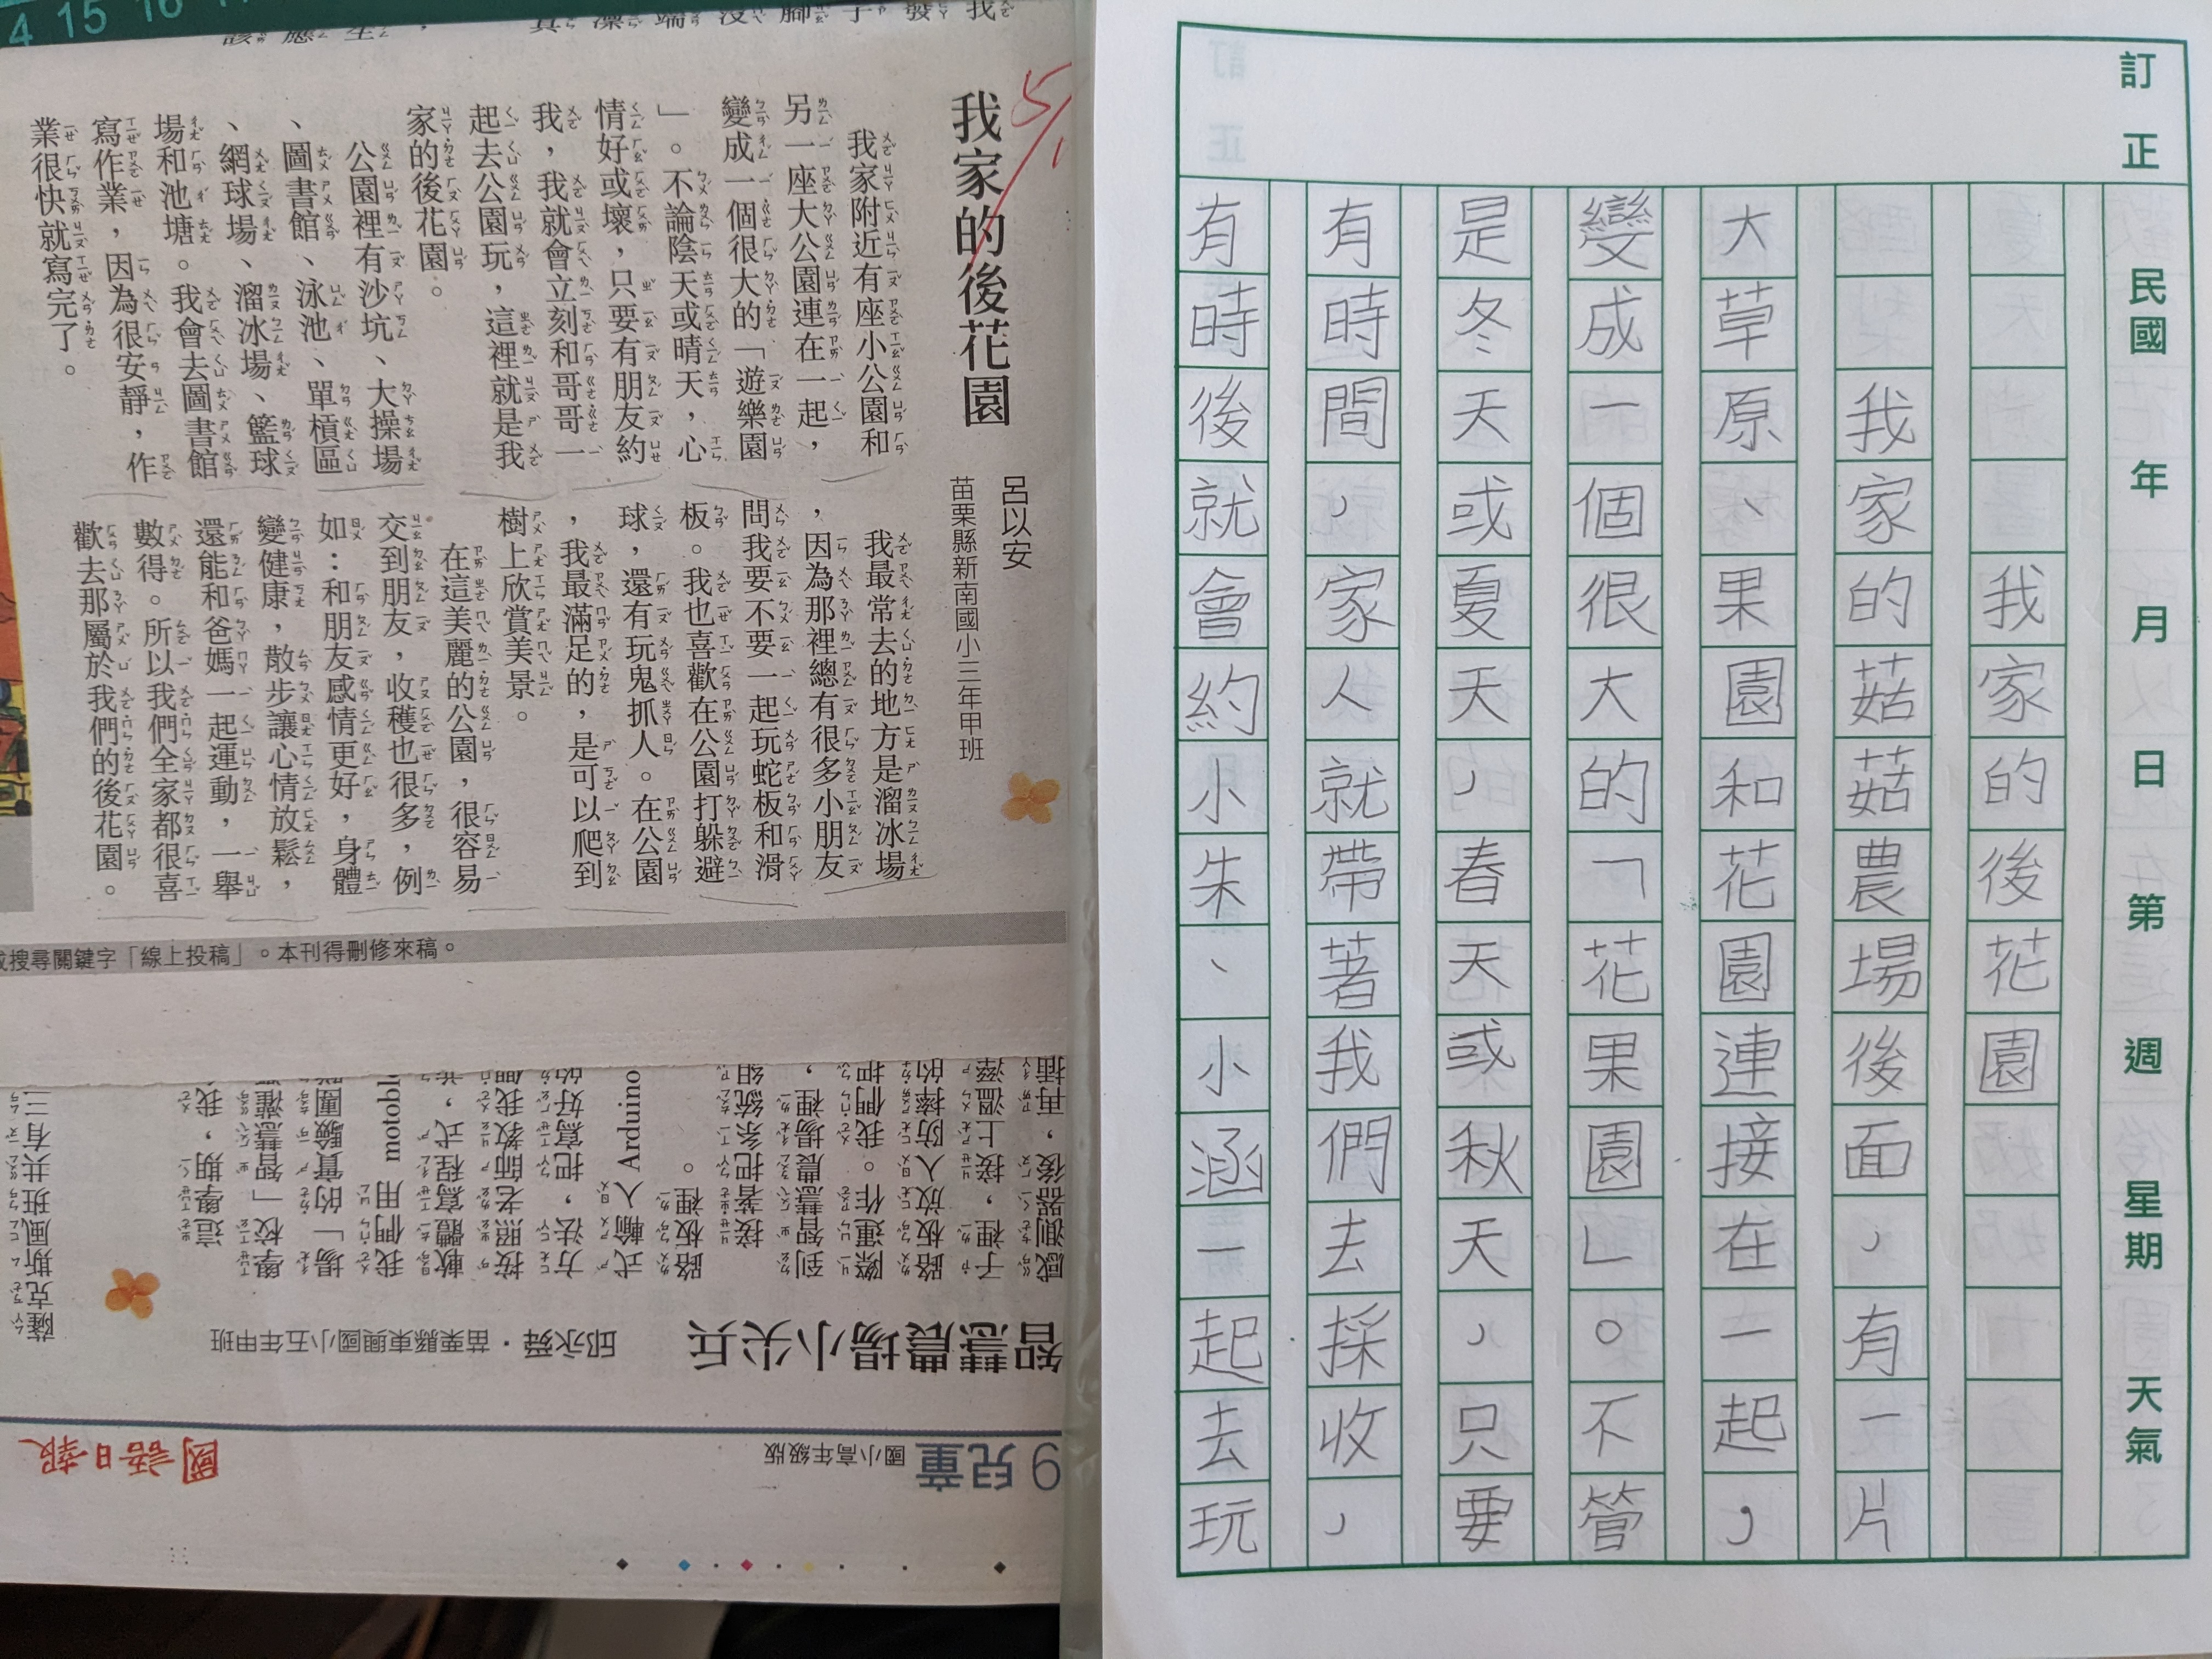 4 15 16
我家的後花園
5/1
呂以安
苗栗縣新南國小三年甲班
我家附近有座小公園和
另一座大公園連在一起，
變成一個很大的「遊樂園
」。不論陰天或晴天，心
情好或壞，只要有朋友約
我，我就會立刻和哥哥一
起去公園玩，這裡就是我
家的後花園。
公園裡有沙坑、大操場
、圖書館、泳池、單槓區
、網球場、溜冰場、籃球
場和池塘。我會去圖書館
寫作業，因為很安靜，作
業很快就寫完了。
我最常去的地方是溜冰場
，因為那裡總有很多小朋友
問我要不要一起玩蛇板和滑
板。我也喜歡在公園打躲避
球，還有玩鬼抓人。在公園
，我最滿足的，是可以爬到
樹上欣賞美景。
在這美麗的公園，很容易
交到朋友，收穫也很多，例
如：和朋友感情更好，身體
變健康，散步讓心情放鬆，
還能和爸媽一起運動，一舉
數得。所以我們全家都很喜
歡去那屬於我們的後花園。
搜尋關鍵字「線上投稿」。本刊得刪修來稿。
國語日報
9 兒童
國小高年級版
智慧農場小尖兵
邱永舜．苗栗縣東興國小五年甲班
薩克斯風班共有三
這學期，我
學校「智慧
場「的實驗團
我們用 motobl
軟體寫程式，
按照老師教我們
方法，把寫好的
式輸入 Arduino
路板裡。
接著把系統組
到智慧農場裡，
際運作。我們把
路板放入防摔的
子裡，接上溫溼
感測器後，再插
訂正
民國 年 月 日 第 週 星期 天氣
我家的後花園
我家的菇菇農場後面，有一片
大草原、果園和花園連接在一起，
變成一個很大的「花果園」。不管
是冬天或夏天，春天或秋天，只要
有時間，家人就帶著我們去採收，
有時後就會約小朱、小涵一起去玩